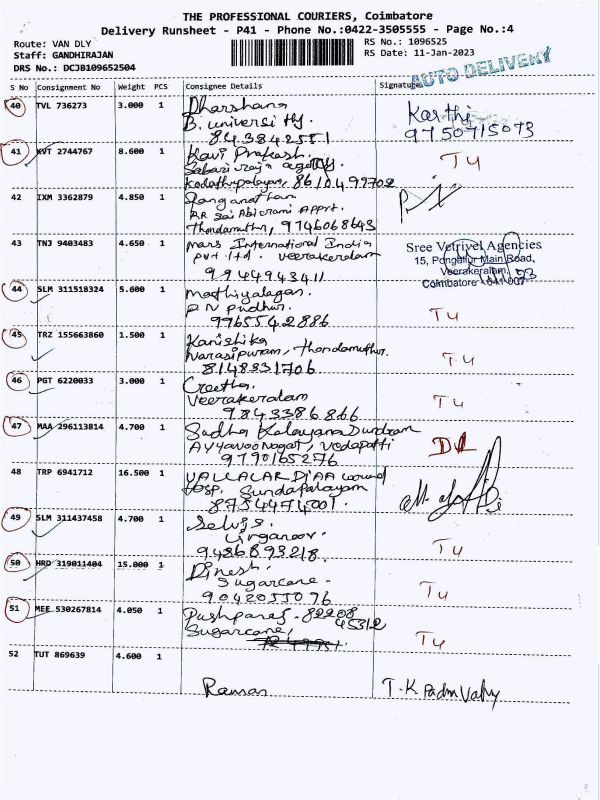 THE PROFESSIONAL COURIERS, Coimbatore
Delivery Runsheet - P41 - Phone No.:0422-3505555 - Page No.:4
Route: VAN DLY
RS No.: 1096525
Staff: GANDHIRAJAN
RS Date: 11-Jan-2023
DRS No.: DCJB109652504
AUTO DELIVERY
S No Consignment No Weight PCS Consignee Details Signature
40 TVL 736273 3.000 1 Dharshana
B. universi
8438425551
9750715073
41 KVT 2744767 8.600 1 Kavi Prakash.
8610499702
T4
42 IXM 3362879 4.850 1 Ranganathan
RR Sai Abirami Appt.
Thondamuthur, 9746068643
43 TNJ 9403483 4.650 1 Mars International India
pvt ltd. veerakeralam
9944943411
Sree Vetrivel Agencies
15, Pongaliur Main Road,
Veerakeralam,
Coimbatore - 641 007
44 SLM 311518324 5.600 1 Mathiyalagan.
P N Pudhur.
9965542886
T4
45 TRZ 155663860 1.500 1 Kanishka
Narasipuram, Thondamuthur.
8148831706
T4
46 PGT 6220033 3.000 1 Geetha.
Veerakeralam
9843386866
T4
47 MAA 296113814 4.700 1 Sudha Kalayana Sundram
Ayyavoo Nagar, Vedapatti
9790165276
DL
48 TRP 6941712 16.500 1 VALLALAR DiAA wound
Hosp. Sundapalayam
8754474001.
49 SLM 311437458 4.700 1 Selvi.
Linganoor.
9486893218
T4
50 HRD 319011404 15.000 1 Dinesh.
Sugarcane.
9042055076
T4
51 MEE 530267814 4.050 1 Pushparaj - 82208
45312
Sugarcane,
T4
52 TUT 869639 4.600 1
Raman
T.K Padm